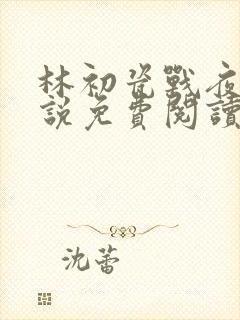 林初瓷戰夜
說免費閱讀
沈蕾